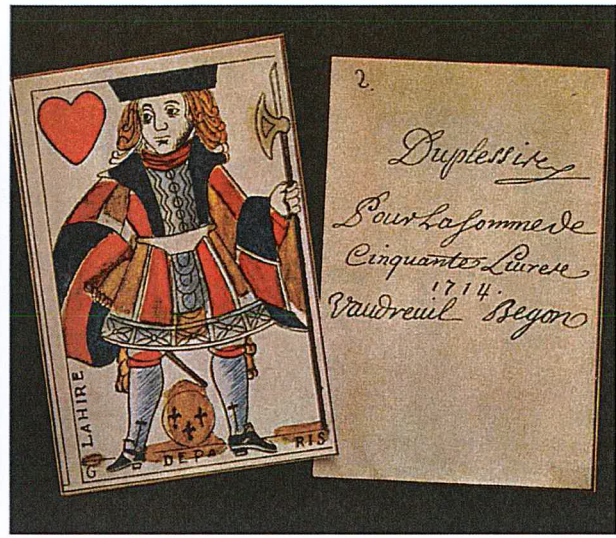 G LAHIRE
DE PARIS
2.
Duplessis
Pour La Somme de
Cinquantes Livres
1714.
Vaudreuil Begon